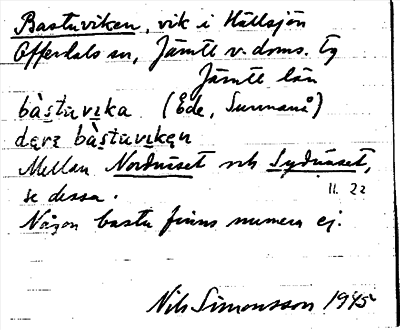 Bastuviken, vik i Hällsjön
Offerdals sn, Jämtl v. doms. tg
Jämtl län
bàstuvika (Ede, Sunnanå)
dærɛ bàstuvikęn
Mellan Nordnäset och Sydnäset,
se dessa.
II. 22
Någon bastu finns numera ej.
Nils Simonsson 1945